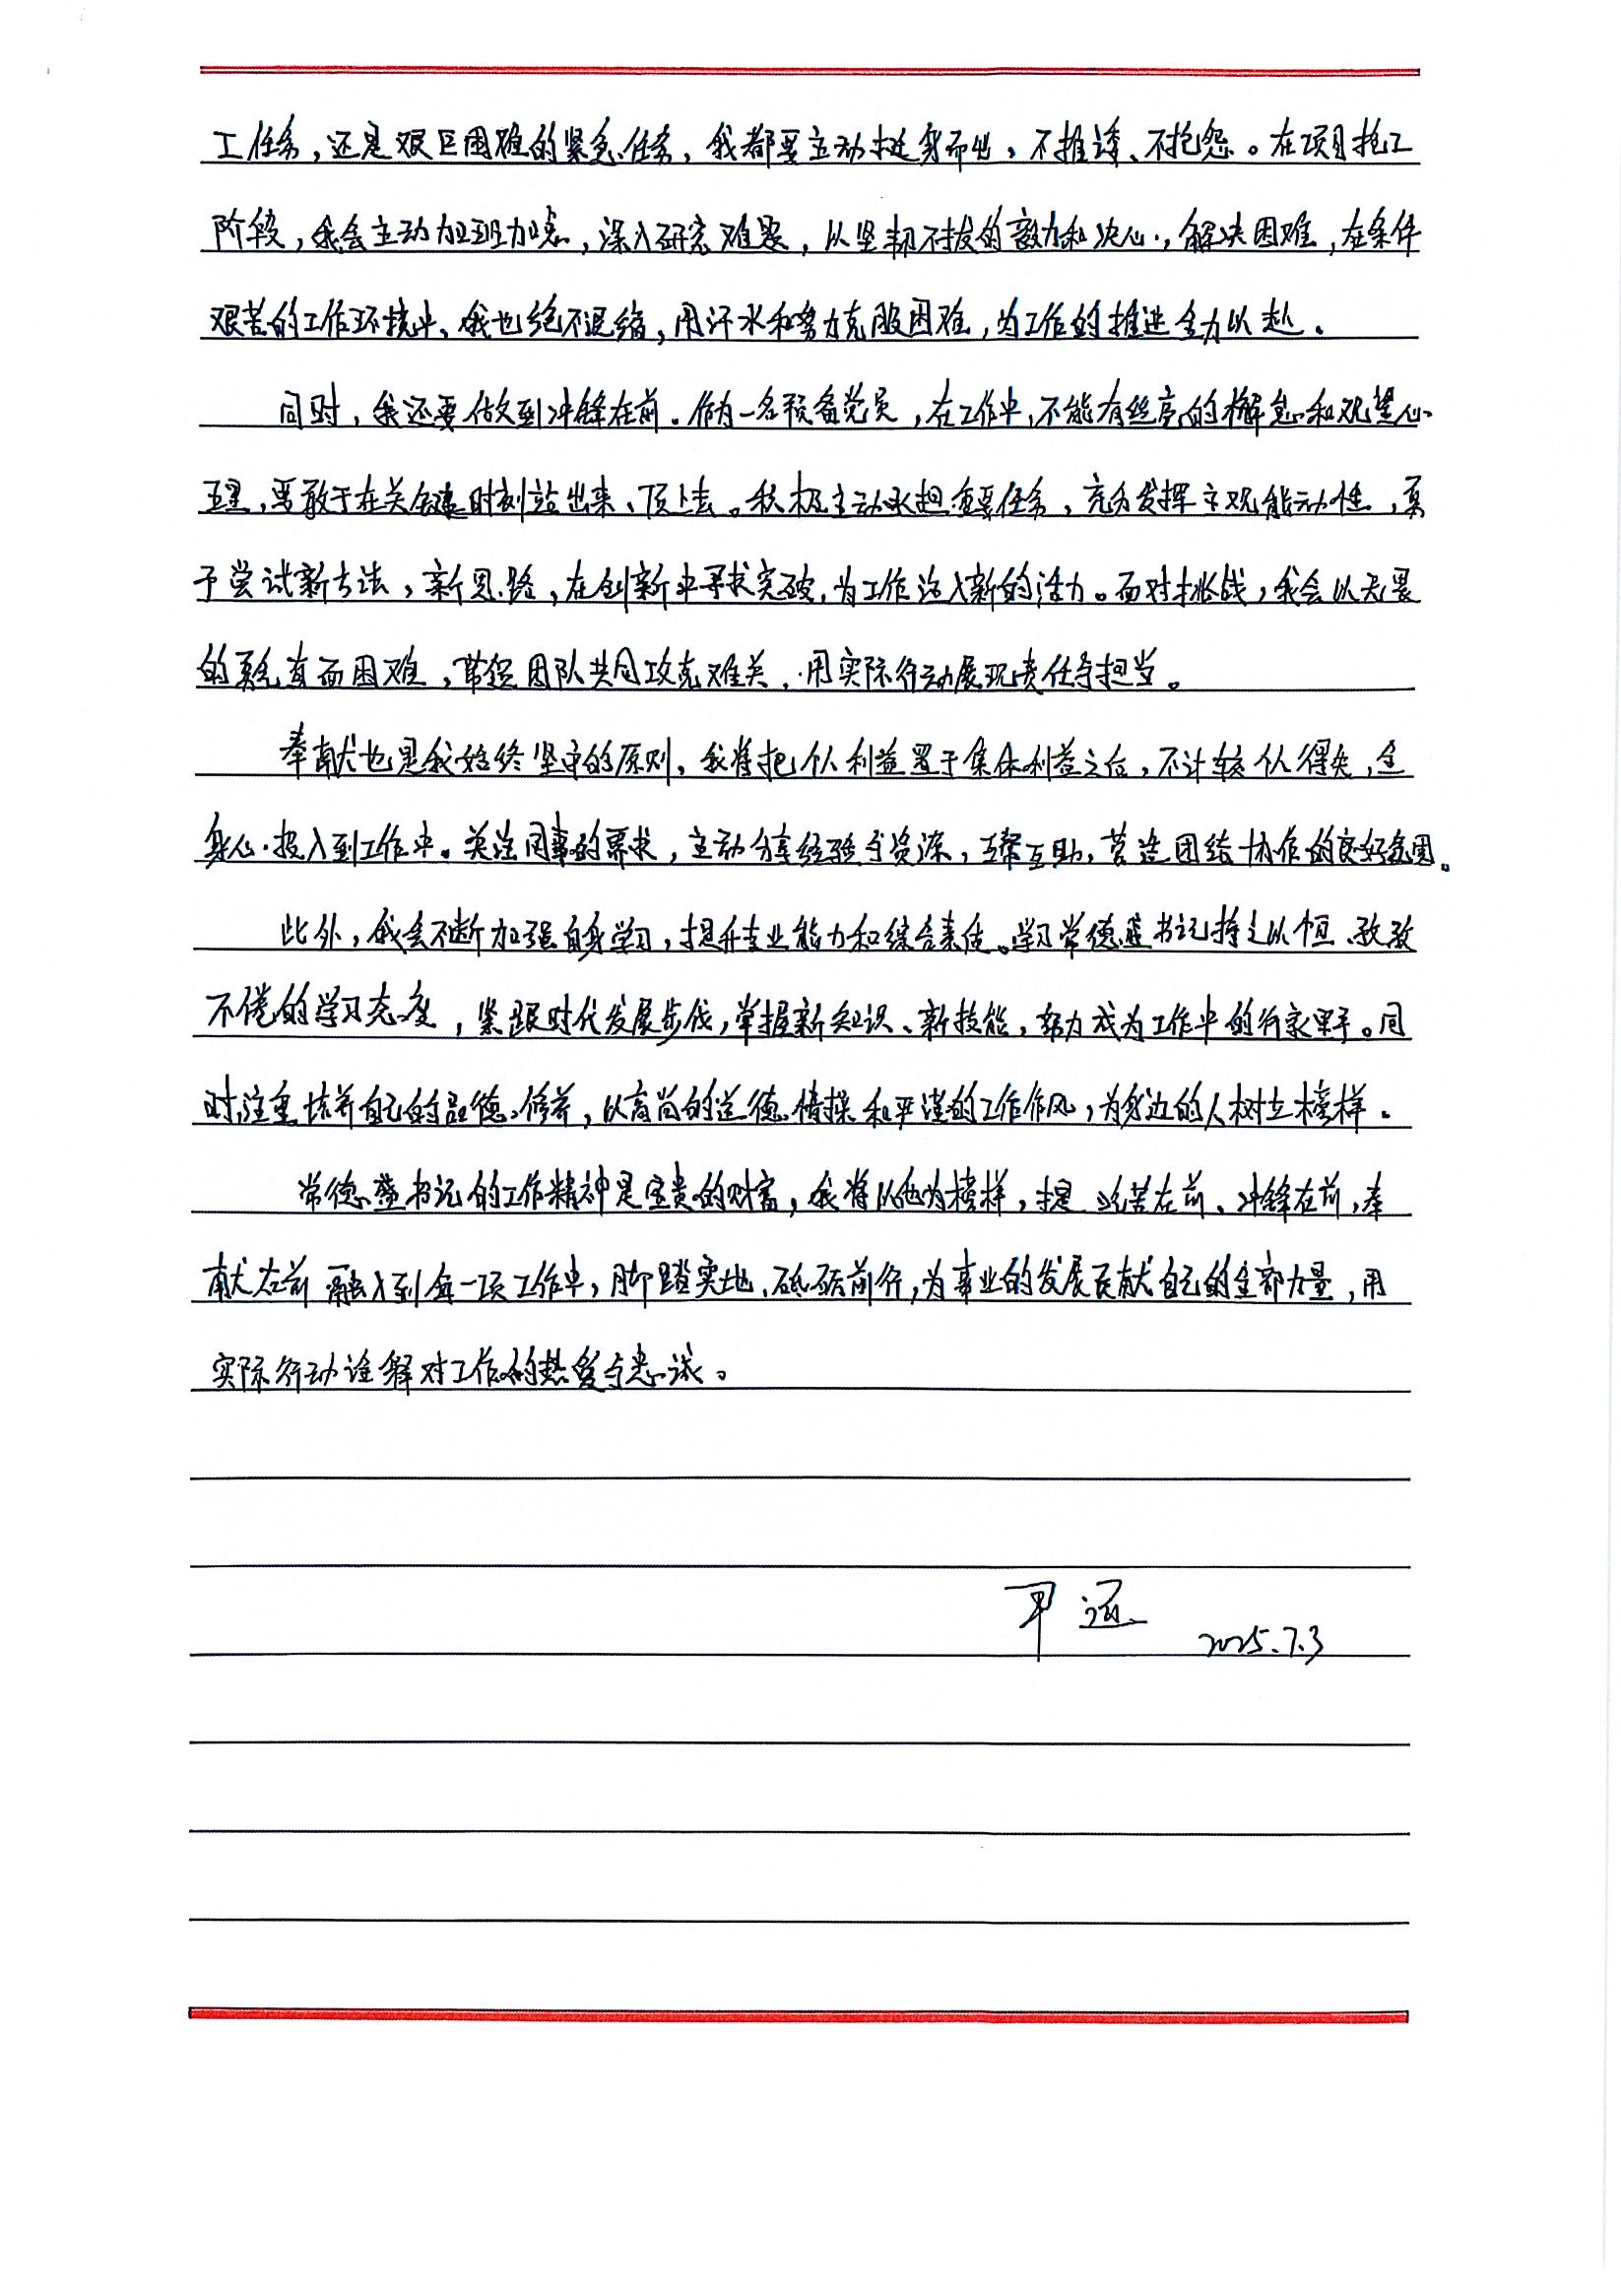 工任务，还是艰巨困难的紧急任务，我都要主动挺身而出，不推诿、不抱怨。在项目抢工
阶段，我会主动加班加点，深入研究难题，以坚韧不拔的毅力和决心，解决困难，在条件
艰苦的工作环境中，我也绝不退缩，用汗水和努力克服困难，为工作的推进全力以赴。
同时，我还要做到冲锋在前。作为一名预备党员，在工作中，不能有丝毫的懈怠和观望心
理，要敢于在关键时刻站出来、顶上去。积极主动承担重要任务，充分发挥主观能动性，勇
于尝试新方法，新思路，在创新中寻求突破，为工作注入新的活力。面对挑战，我会以无畏
的勇气直面困难，带领团队共同攻克难关，用实际行动展现责任与担当。
奉献也是我始终坚守的原则，我将把个人利益置于集体利益之后，不计较个人得失，全
身心投入到工作中。关注同事的需求，主动分享经验与资源，互帮互助，营造团结协作的良好氛围。
此外，我会不断加强自身学习，提升专业能力和综合素质。学习常德盛书记持之以恒、孜孜
不倦的学习态度，紧跟时代发展步伐，掌握新知识、新技能，努力成为工作中的行家里手。同
时注重培养自己的品德修养，以高尚的道德情操和严谨的工作作风，为身边的人树立榜样。
常德盛书记的工作精神是宝贵的财富，我将以他为榜样，把吃苦在前、冲锋在前，奉
献在前融入到每一项工作中，脚踏实地、砥砺前行，为事业的发展贡献自己的全部力量，用
实际行动诠释对工作的热爱与忠诚。
2025.7.3